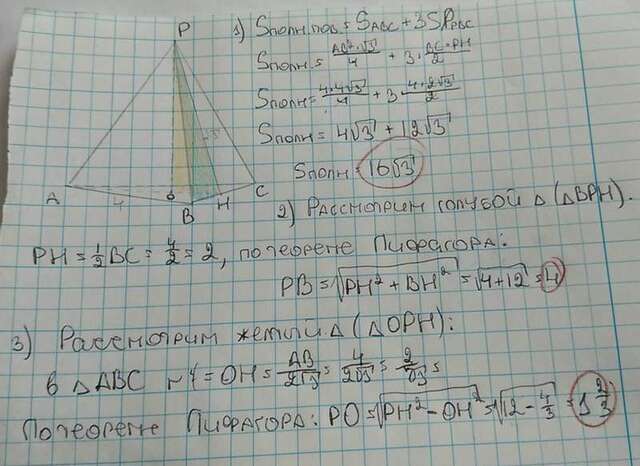 P
1) Sполн.пов = SABC + 3SPBC
Sполн = AB²·√3/4 + 3·BC·PH/2
Sполн = 4·4√3/4 + 3·4·2√3/2
Sполн = 4√3 + 12√3
Sполн = 16√3
A 4 O B H C
2) Рассмотрим голубой Δ (ΔBPH).
PH = 1/2 BC = 4/2 = 2, по теореме Пифагора:
PB = √PH² + BH² = √4+12 = 4
3) Рассмотрим желтый Δ (ΔOPH):
в ΔABC r = OH = AB/2√3 = 4/2√3 = 2/√3 =
По теореме Пифагора: PO = √PH² – OH² = √12 – 4/3 =